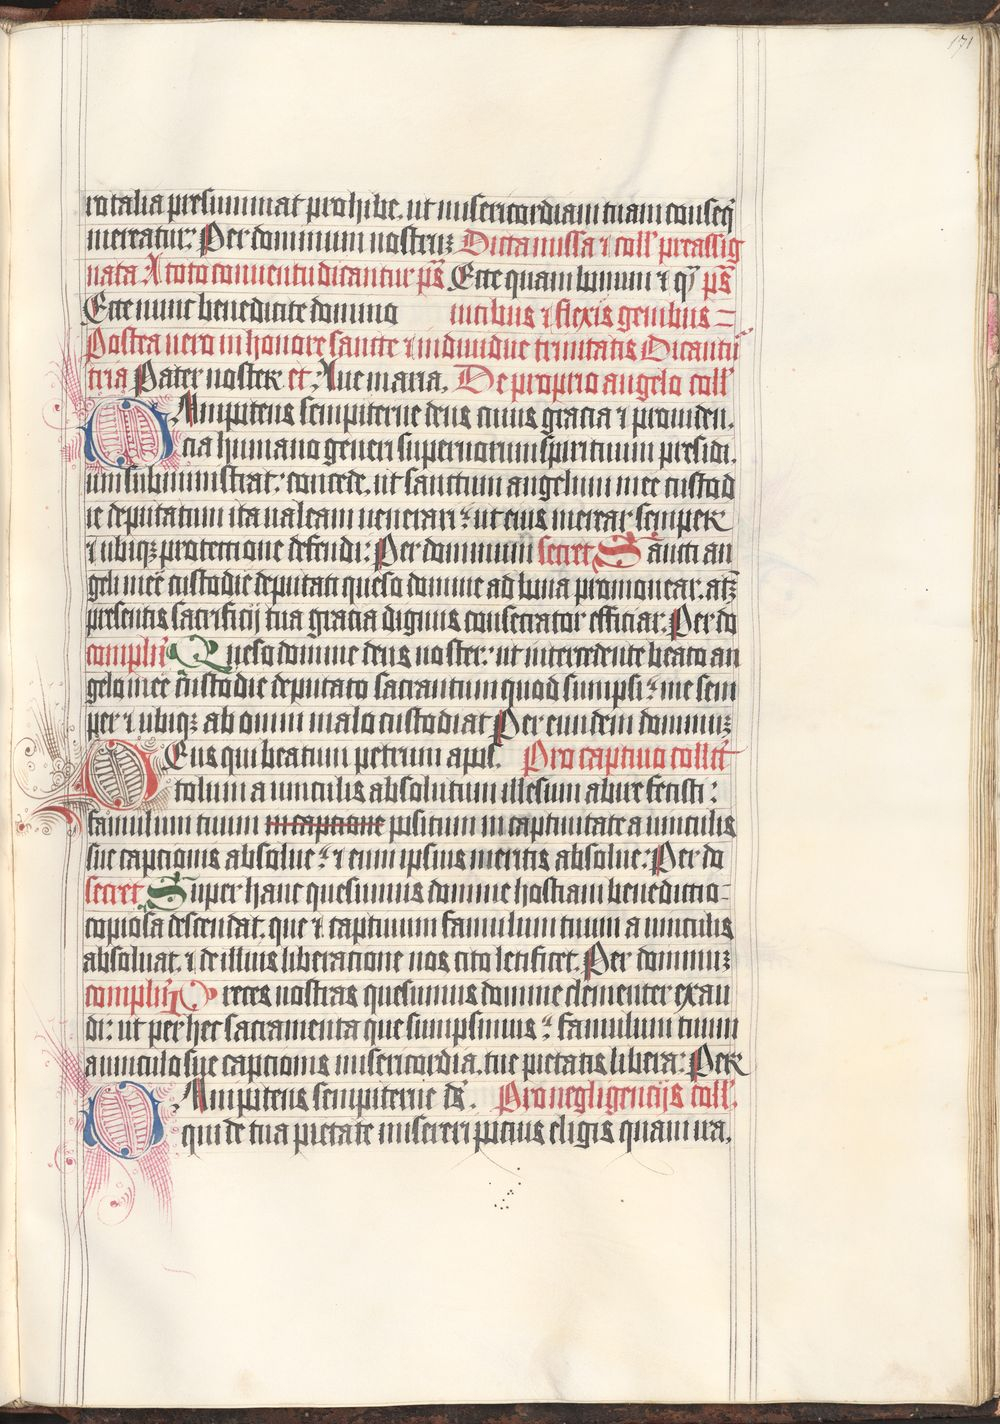 171
rotalia presummat prohibe. ut misericordiam tuam conseq̄
mereatur. Per dominum nostrūʒ Dicta missa ⁊ coll' preassig
nata A toto conuentu dicantur ps̄ Ecce quam bonum ⁊ q̄ ps̄
Ecce nunc benedicite domino nitibus ⁊ flexis genibus =
Postea uero in honore sancte ⁊ indiuidue trinitatis Dicantū
tria Pater noster et Aue maria, De proprio angelo coll'
OMnipotens sempiterne deus cuius gracia ⁊ prouiden,
cia humano generi supernorum spirituum presidi,
um subministrat: concede, ut sanctum angelum mee custod
ie deputatum ita ualeam uenerari: ut eius merear semper
⁊ ubiqʒ protectione defendi: Per dominum secret Sancti an
geli mee custodie deputati queso domine ad bona promouear. atqʒ
presentis sacrificij tua gracia dignus consecrator efficiar. Per do
complēn̄ Queso domine deus noster: ut intercedente beato an
gelo mee custodie deputato sacrantum quod sumpsi: me sem
per ⁊ ubiqʒ ab omni malo custodiat Per eundem dominūʒ
DEus qui beatum petrum apos. Pro captiuo collē
tolum a uinculis absolutum illesum abire fecisti:
famulum tuum in captione positum in captiuitate a uinculis
sue captionis absolue: ⁊ eum ipsius meritis absolue: Per do
secret Super hanc quesumus domine hostiam benedictio-
copiosa descendat. que ⁊ captiuum famulum tuum a uinculis
absoluat. ⁊ de illius liberacione nos cito letificet. Per dominūʒ
complēn̄ Preces nostras quesumus domine clementer exau
di: ut per hec sacramenta que sumpsimus: famulum tuum
a uinculo sue captionis misericordia. tue pietatis libera: Per
OMnipotens sempiterne ds̄. Pro negligencijs coll'.
qui de tua pietate misereri pocius eligis quam ira,